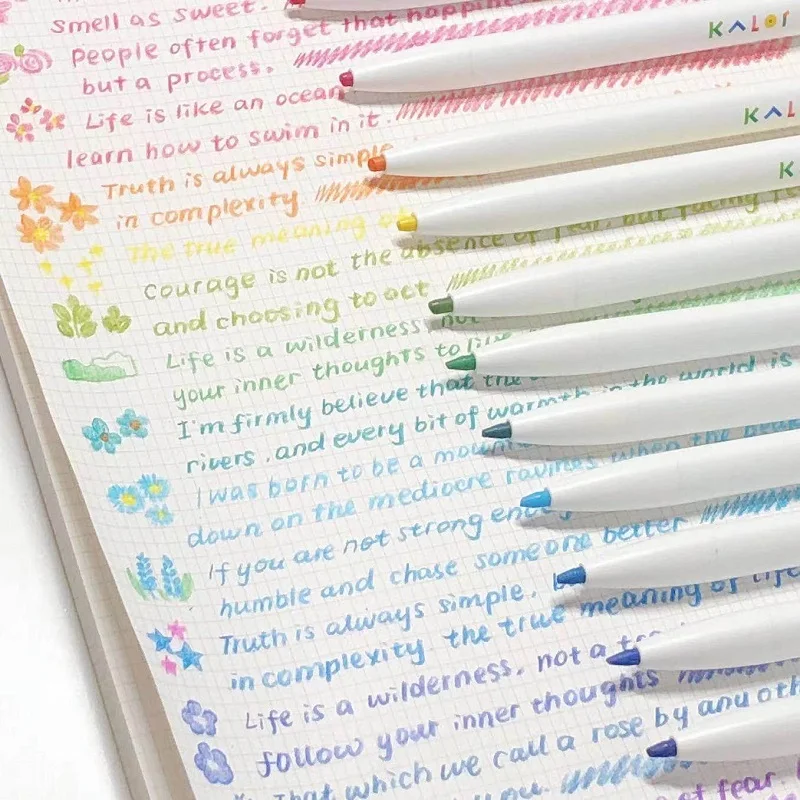 smell as sweet.
People often forget that happiness
but a process.
Life is like an ocean
learn how to swim in it.
Truth is always simple
in complexity
The true meaning of
courage is not the absence of fear, but facing
and choosing to act
Life is a wilderness, not
your inner thoughts to
I'm firmly believe that the
rivers, and every bit of warmth in the world is
I was born to be a
down on the mediocre ravines when the
If you are not strong
humble and chase someone better
Truth is always simple,
in complexity, the true meaning of life
Life is a wilderness, not a
follow your inner thoughts
That which we call a rose by any
fear.
KALOR
KAL
K